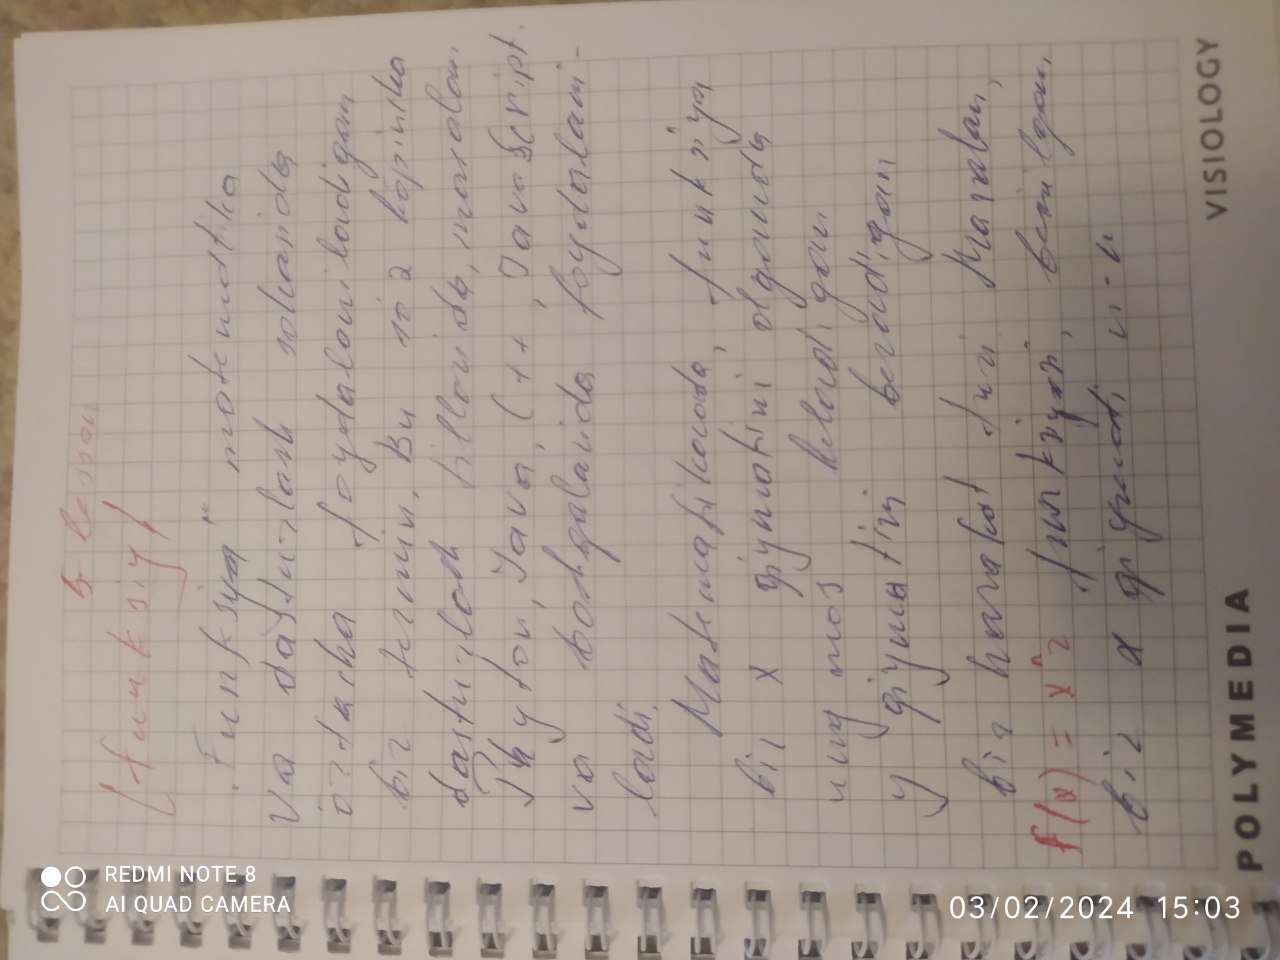 5 lesson
(funksiy)
"Funksiya" matematika
va dasturlash sohasida
o'rtacha foydalaniladigan
bir termin. Bu so'z ko'pincha
dasturlash tillarida, masalan,
Python, Java, C++, JavaScript.
va boshqalarida foydalani-
ladi.
Matematikada, funksiya
bir x qiymatini olganda
unga mos keladigan
y qiymatini beradigan
bir harakat turi Masalan,
f(x) = x^2 funksiyasi, berilgan
bir x qiymati
POLYMEDIA VISIOLOGY
REDMI NOTE 8
AI QUAD CAMERA
03/02/2024 15:03